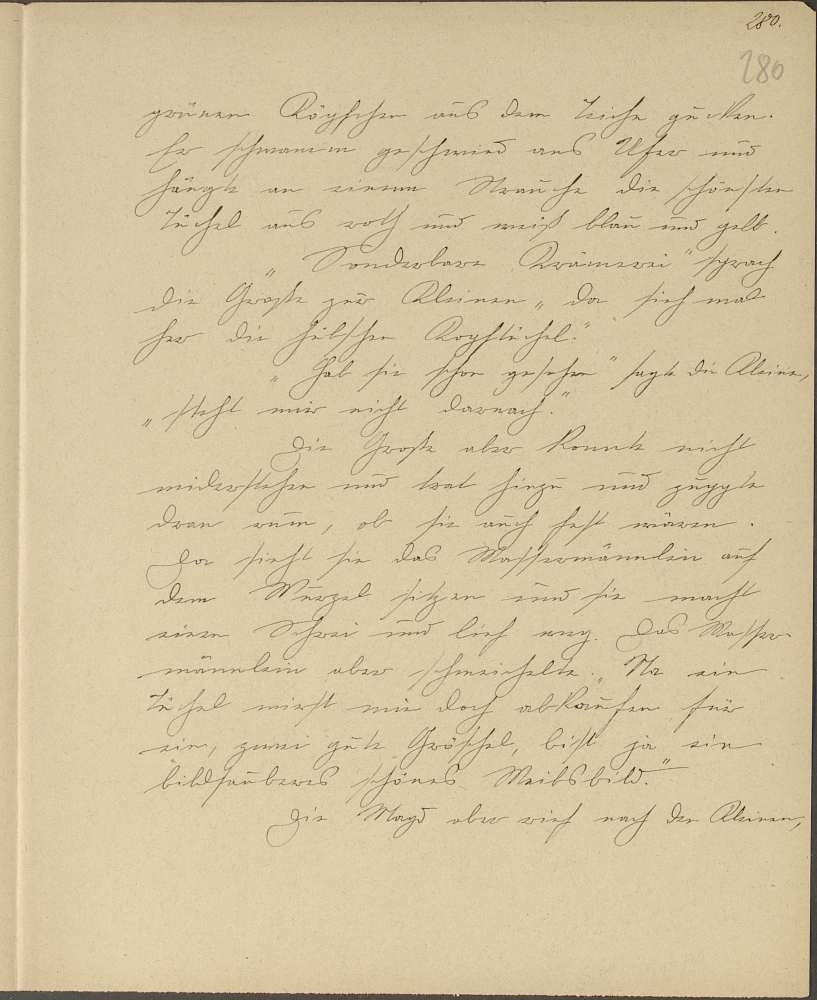 280.
280
grünen Köpfchen aus dem Teiche gucken.
Er schwamm geschwind ans Ufer und
hängte an einem Strauche die schönsten
Tüchel aus roth und weiß blau und gelb.
„Sonderbare Krämerei" sprach
die Große zur Kleinen „da sieh mal
her die hübschen Kopftüchel."
„Hab sie schon gesehen" sagte die Kleine,
„steht mir nicht darnach."
Die Große aber konnte nicht
widerstehen und trat hinzu und zuppte
dran rum, ob sie auch fest wären.
Da sieht sie das Wassermännlein auf
dem Wurzel sitzen und sie macht
einen Schrei und lief weg. Das Wasser-
männlein aber schmeichelte: „Na ein
Tüchel wirst mir doch abkaufen für
ein, zwei gute Gröschel, bist ja ein
bildsauberes schönes Weibsbild."
Die Magd aber rief nach der Kleinen,